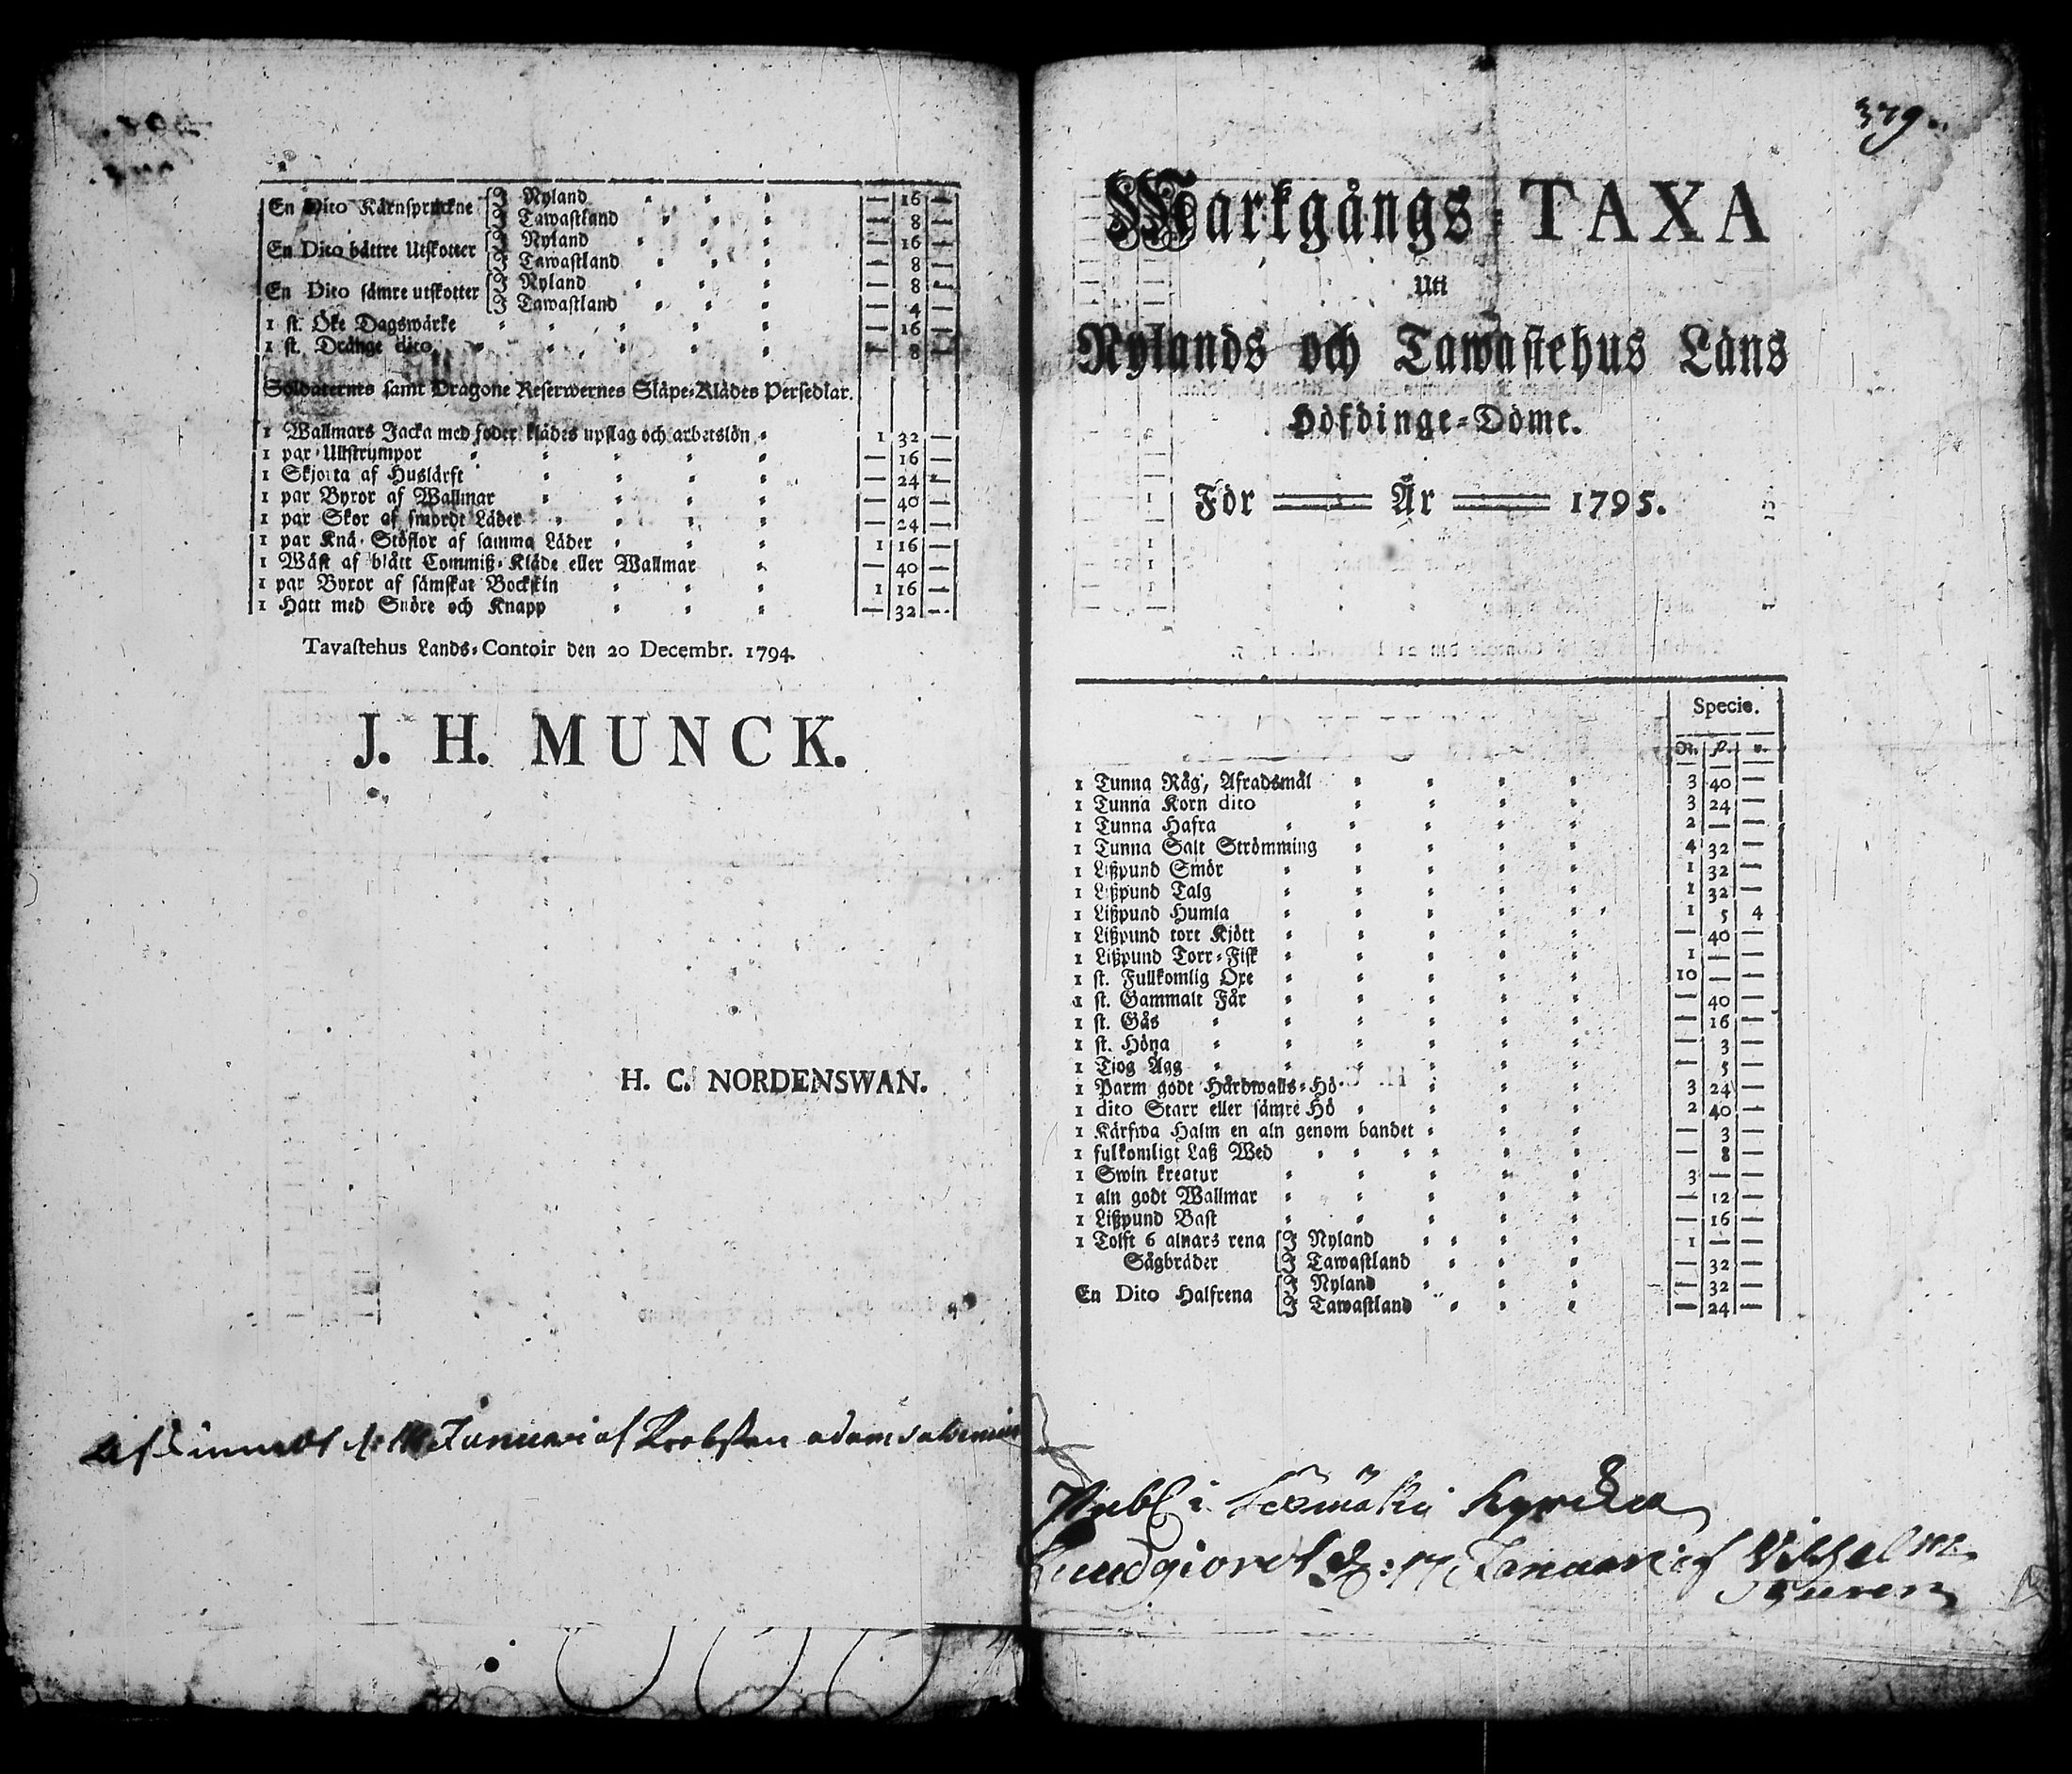 En Dito Kärnspruckne I Nyland — 16 —
I Tawastland — 8 —
En Dito bättre Utskotter I Nyland — 16 —
I Tawastland — 8 —
En Dito sämre utskotter I Nyland — 8 —
I Tawastland — 4 —
1 st. Öke Dagswärke — 16 —
1 st. Dränge dito — 8 —
Soldaternes samt Dragone Reserwernes Släpe-Klädes Persedlar.
1 Wallmars Jacka med foder klädes upslag och arbetslön 1 32 —
1 par Ullstrumpor — 16 —
1 Skjorta af Huslärft — 24 —
1 par Byxor af Wallmar — 40 —
1 par Skor af smordt Läder — 24 —
1 par Knä-Stöflor af samma Läder 1 16 —
1 Wäst af blått Commiß-Kläde eller Wallmar — 40 —
1 par Byxor af sämskat Bockskin 1 16 —
1 Hatt med Snöre och Knapp — 32 —
Tavastehus Lands-Contoir den 20 Decembr. 1794.
J. H. MUNCK.
H. C. NORDENSWAN.
Januari af
379.
Markgångs-TAXA
Uti
Nylands och Tawastehus Läns
Höfdinge-Döme.
För År 1795.
Specie.
R. ß. r.
1 Tunna Råg, Afradsmål 3 40 —
1 Tunna Korn dito 3 24 —
1 Tunna Hafra 2 — —
1 Tunna Salt Strömming 4 32 —
1 Lißpund Smör 1 32 —
1 Lißpund Talg 1 32 —
1 Lißpund Humla 1 5 4
1 Lißpund tort Kjött — 40 —
1 Lißpund Torr-Fisk 1 — —
1 st. Fullkomlig Oxe 10 — —
1 st. Gammalt Får — 40 —
1 st. Gås — 16 —
1 st. Höna — 3 —
1 Tjog Ägg — 5 —
1 Parm godt Hårdwalls-Hö 3 24 —
1 dito Starr eller sämre Hö 2 40 —
1 Kärfwa Halm en aln genom bandet — 3 —
1 fulkomligt Laß Wed — 8 —
1 Swin kreatur 3 — —
1 aln godt Wallmar — 12 —
1 Lißpund Bast — 16 —
1 Tolft 6 alnars rena I Nyland 1 — —
Sågbräder I Tawastland — 32 —
En Dito Halfrena I Nyland — 32 —
I Tawastland — 24 —
Publ i Kyrcka
Kundgiordt Januari af Vilhelm